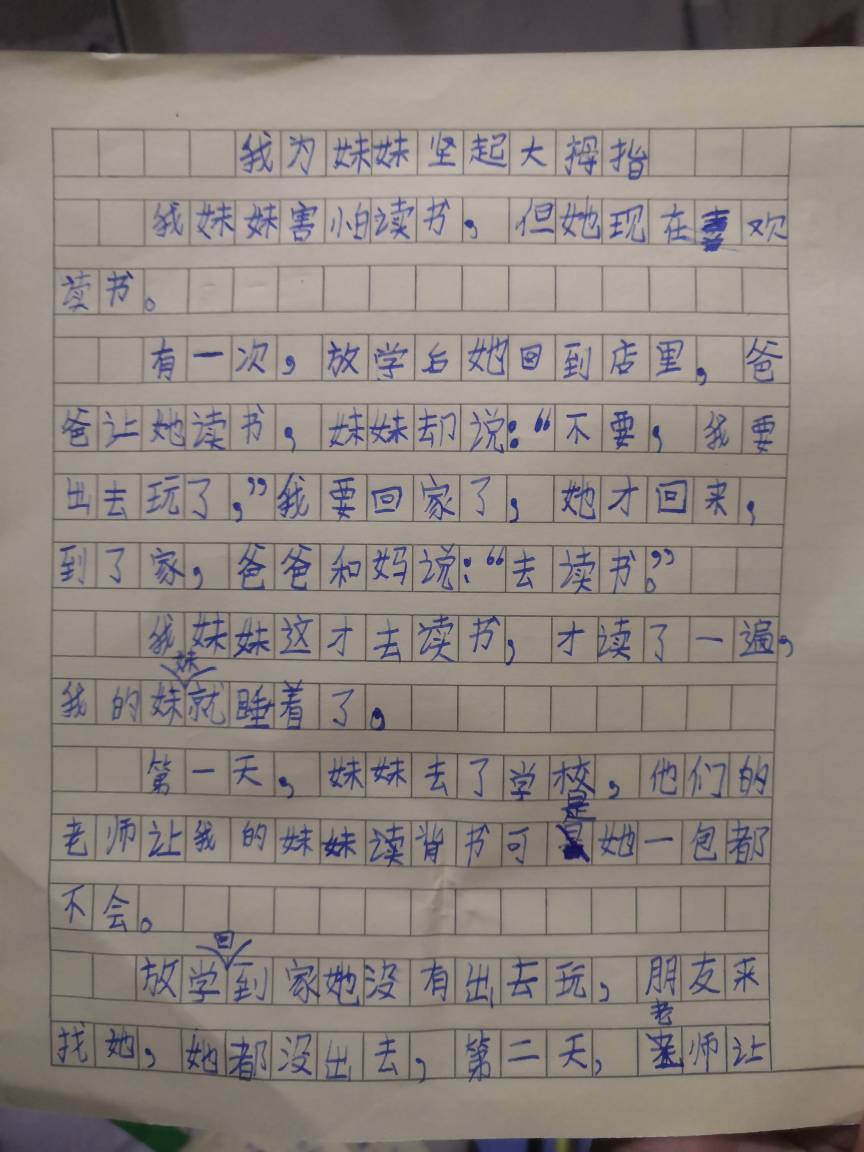 我为妹妹坚起大拇指
我妹妹害怕读书，但她现在喜欢
读书。
有一次，放学后她回到店里，爸
爸让她读书，妹妹却说：“不要，我要
出去玩了，”我要回家了，她才回来，
到了家，爸爸和妈说：“去读书。”
我妹妹这才去读书，才读了一遍，
我的妹妹就睡着了。
第一天，妹妹去了学校，他们的
老师让我的妹妹读背书可是她一包都
不会。
放学回到家她没有出去玩，朋友来
找她，她都没出去，第二天，老师让